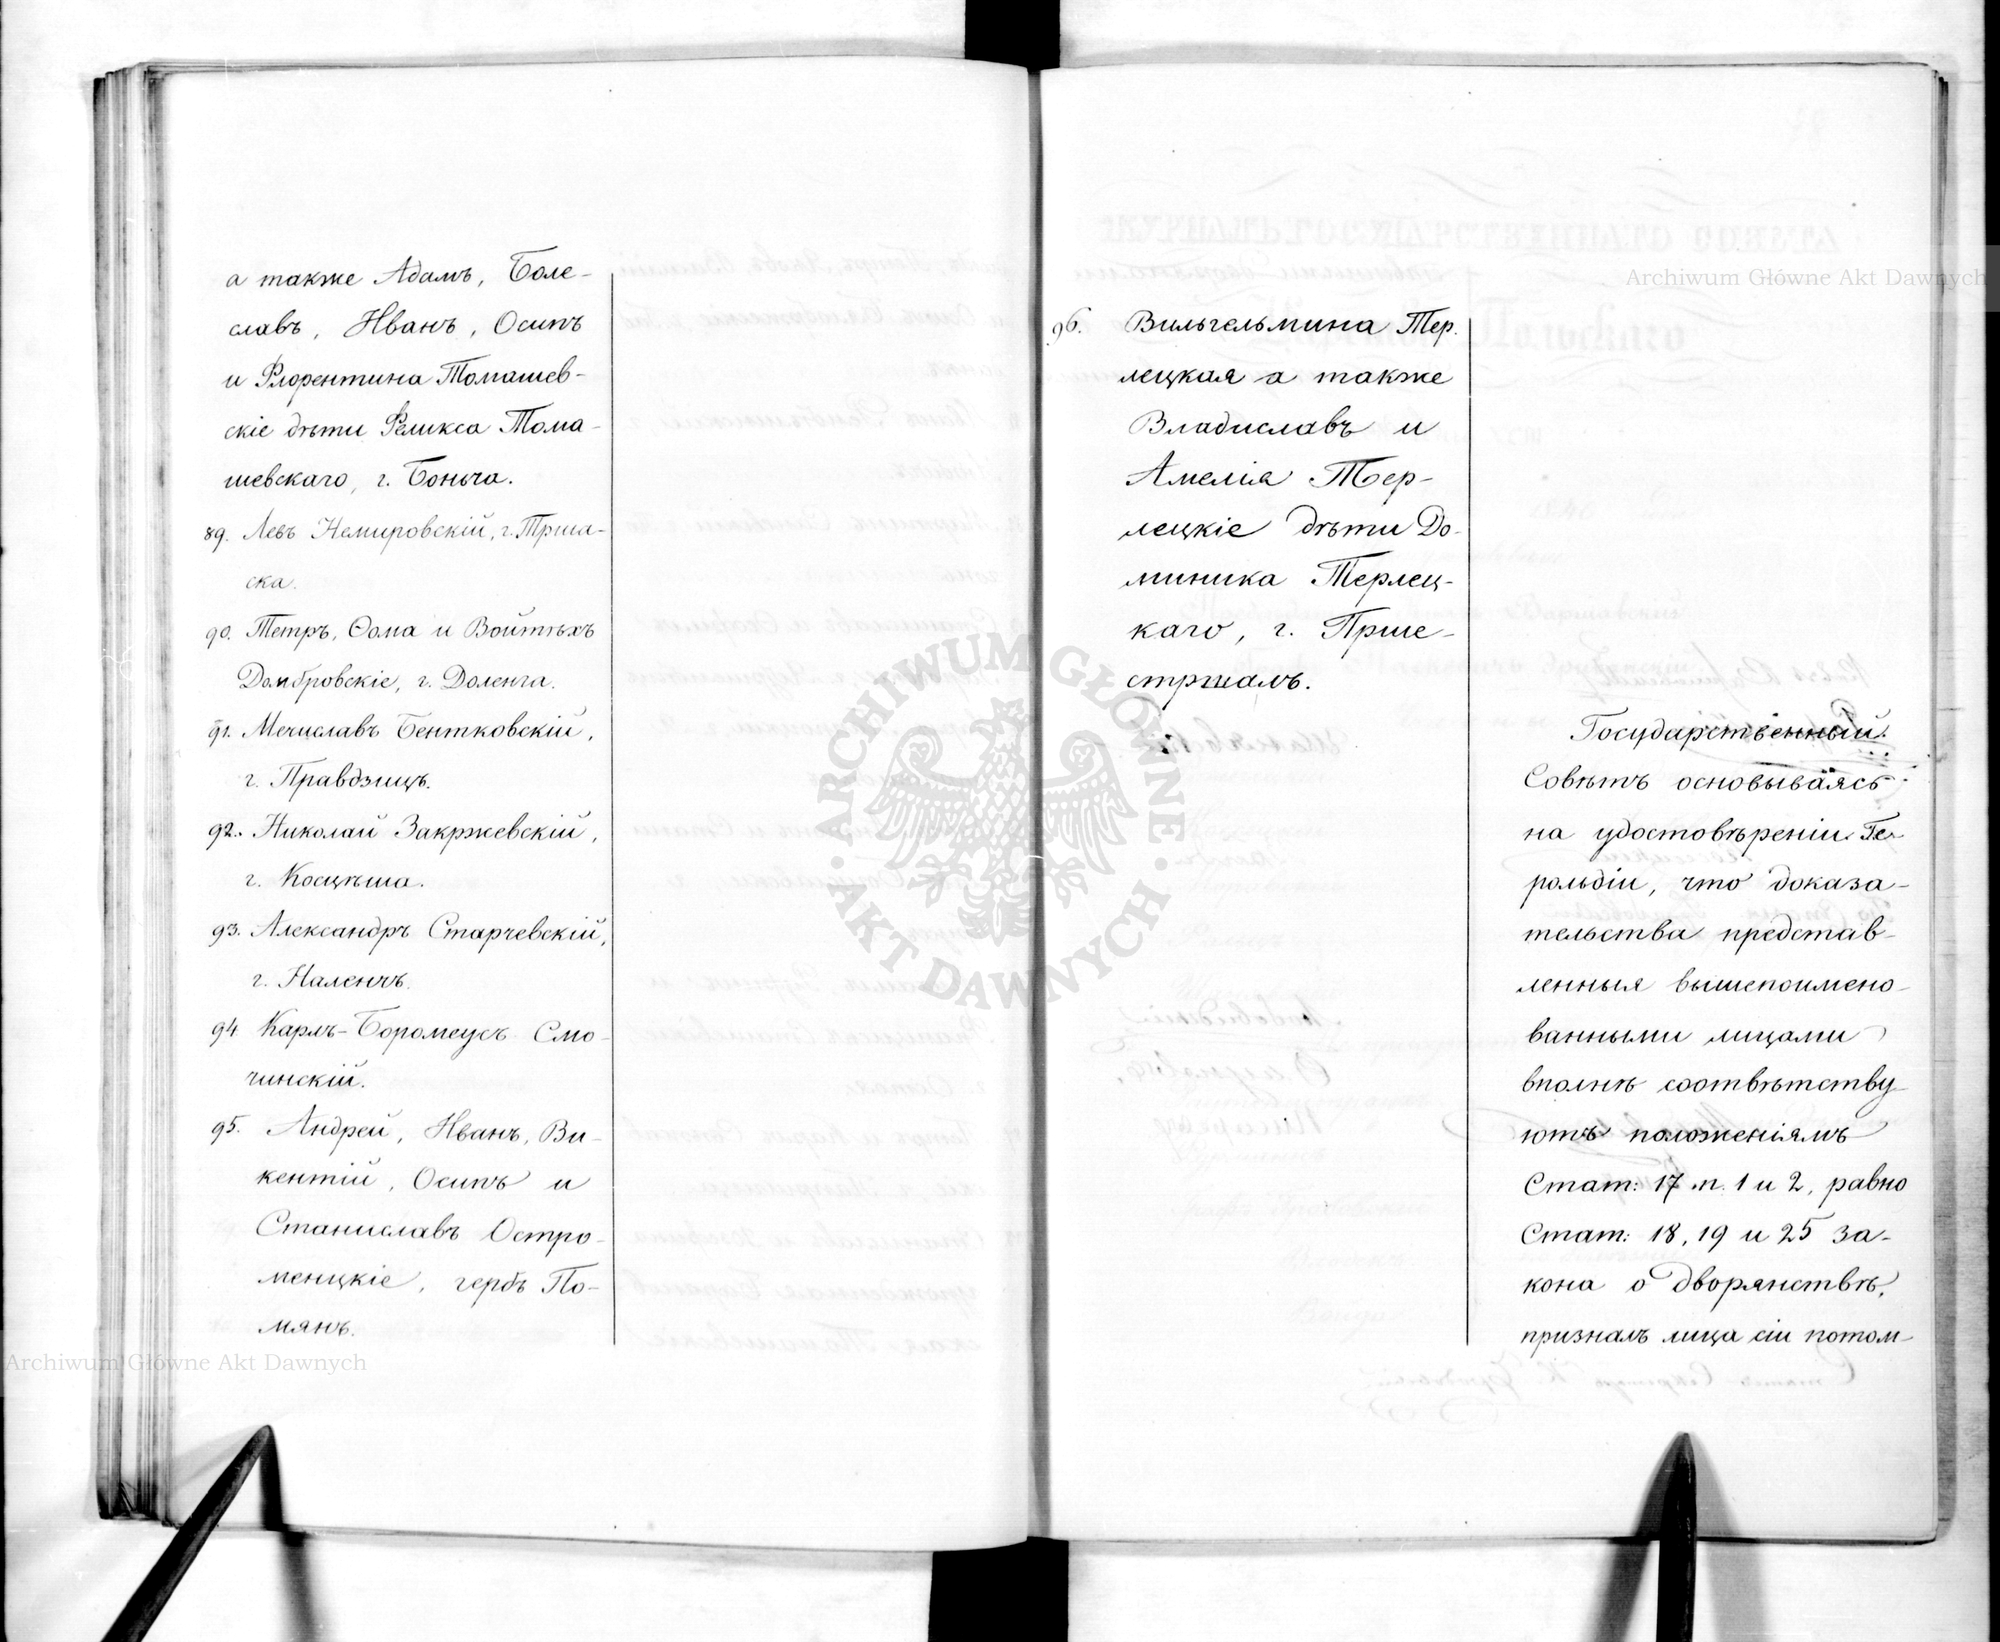 а также Адамъ, Боле-
славъ, Иванъ, Осипъ
и Флорентина Томашев-
скіе дѣти Феликса Тома-
шевскаго, г. Боньча.
89. Левъ Немировскій, г. Трша-
ска.
90. Петръ, Ѳома и Войтѣхъ
Домбровскіе, г. Доленга.
91. Мечиславъ Бентковскій,
г. Правдзицъ.
92. Николай Закржевскій,
г. Косцѣша.
93. Александръ Старчевскій,
г. Наленчъ.
94 Карлъ-Боромеусъ Смо-
чинскій.
95. Андрей, Иванъ, Ви-
кентій, Осипъ и
Станиславъ Остро-
менцкіе, гербъ По-
мянъ.
96. Вильгельмина Тер-
лецкая а также
Владиславъ и
Амелія Тер-
лецкіе дѣти До-
миника Терлец-
каго, г. Прше-
стржалъ.
Государственный
Совѣтъ основываясь
на удостовѣреніи Ге-
рольдіи, что доказа-
тельства представ-
ленныя вышепоимено-
ванными лицами
вполнѣ соотвѣтству-
ютъ положеніямъ
Стат: 17 п. 1 и 2, равно
Стат: 18, 19 и 25 за-
кона о дворянствѣ,
призналъ лица сіи потом-
Archiwum Główne Akt Dawnych
Archiwum Główne Akt Dawnych
ARCHIWUM GŁÓWNE AKT DAWNYCH